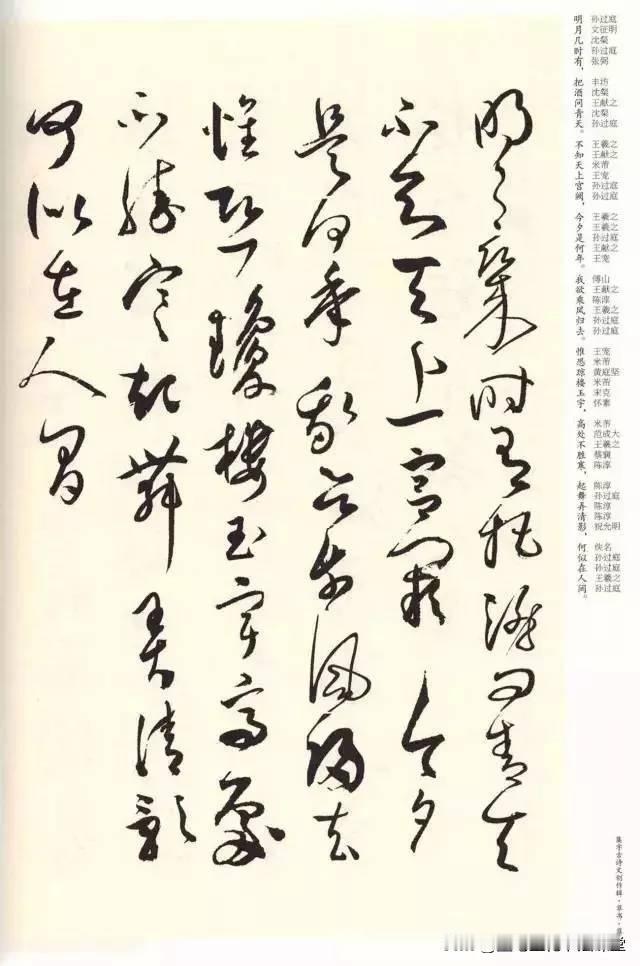 明月幾時有把酒問青天
不知天上宮闕今夕
是何年我欲乘風歸去
惟恐瓊樓玉宇高處
不勝寒起舞弄清影
何似在人間
明月几时有，把酒问青天。不知天上宫阙，今夕是何年。我欲乘风归去。惟恐琼楼玉宇，高处不胜寒，起舞弄清影，何似在人间。
孙过庭
文征明
沈粲
孙过庭
张弼
丰坊
沈粲
王献之
沈粲
孙过庭
王羲之
王献之
米芾
王宠
孙过庭
孙过庭
王羲之
王羲之
孙过庭
王献之
王宠
傅山
王献之
陈淳
王羲之
孙过庭
孙过庭
王宠
米芾
黄庭坚
米芾
宋克
怀素
米芾
范成大
王羲之
蔡襄
陈淳
陈淳
孙过庭
陈淳
陈淳
祝允明
佚名
孙过庭
孙过庭
王羲之
孙过庭
集字古诗文创作辑·草书